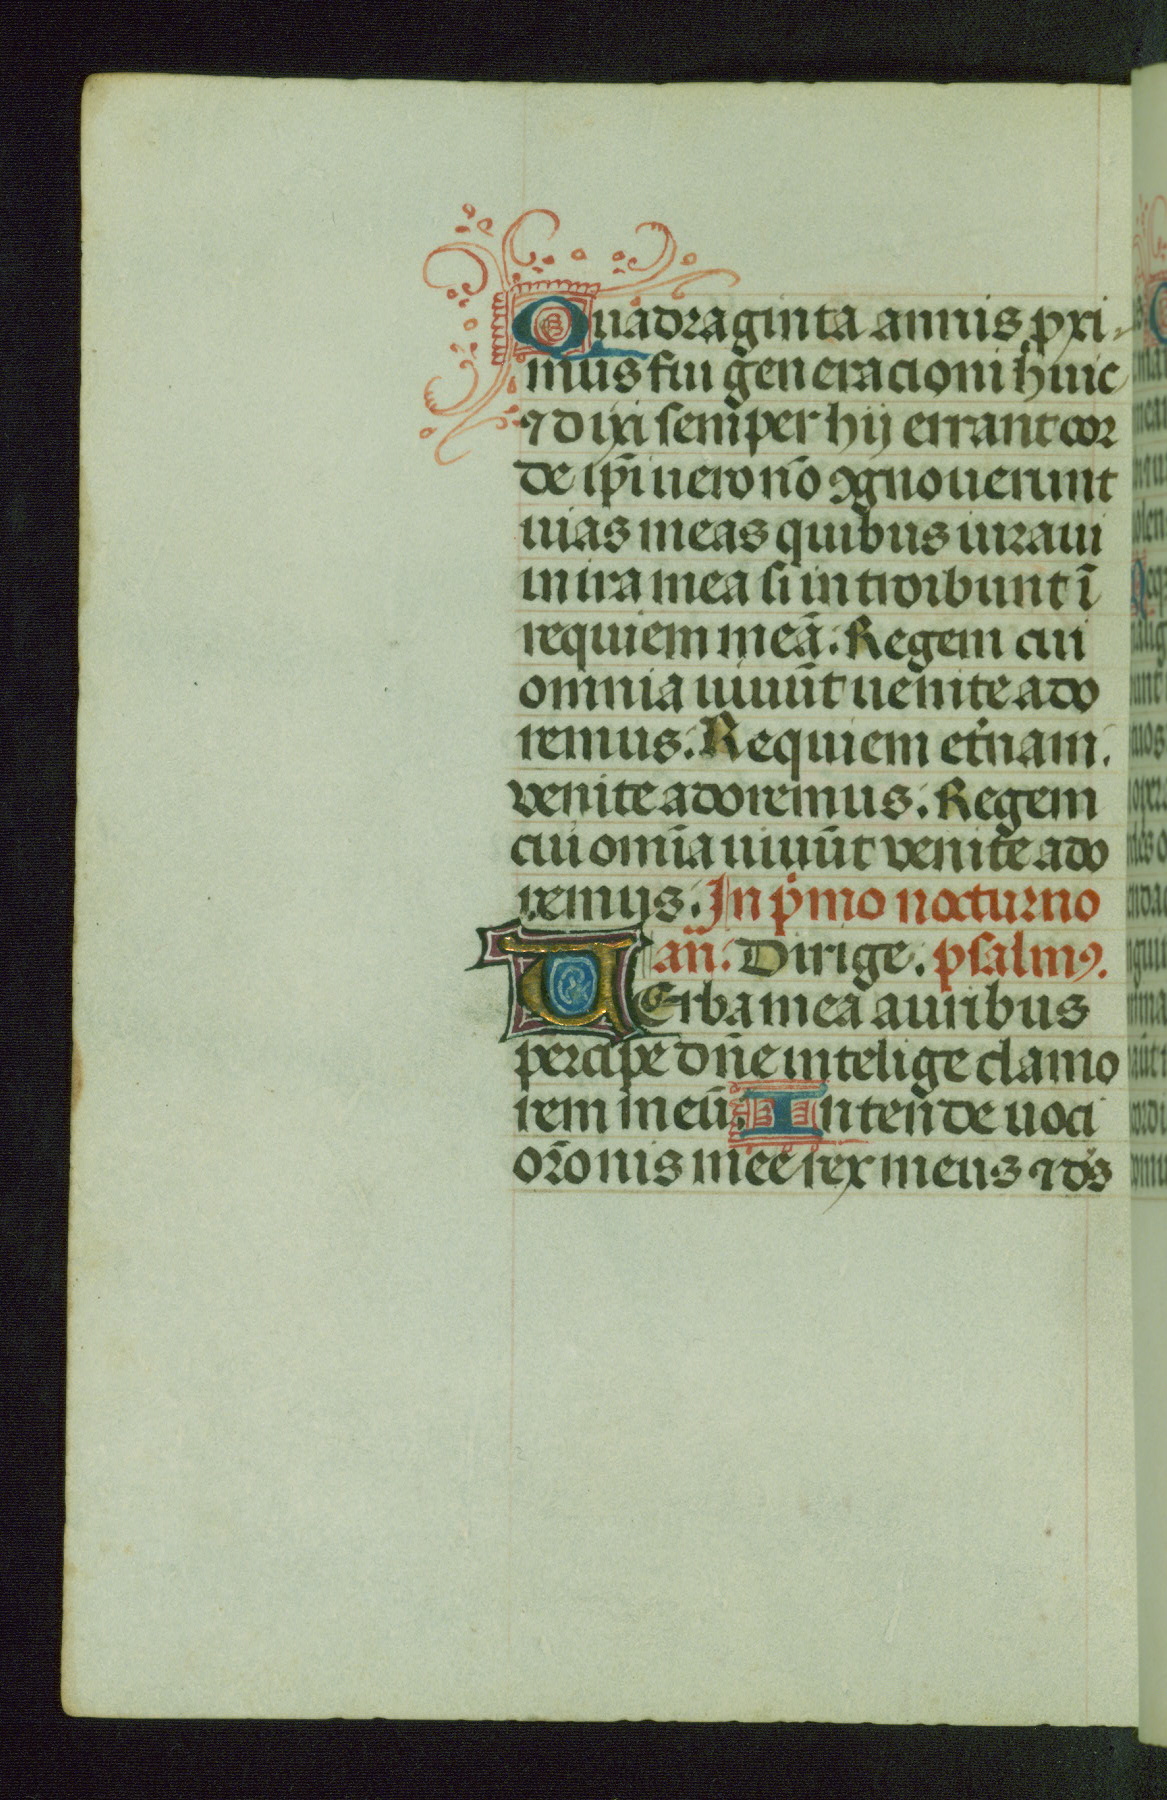 Quadraginta annis p̱xi-
mus fui generacioni huic
⁊ dixi semper hij errant cor
de ip̄i uero nō ꝯgnouerunt
uias meas quibus iuraui
in ira mea si introibunt ī
requiem meā. Regem cui
omnia uiuūt uenite ado
remus. Requiem et̓nam.
venite adoremus. Regem
cui omīa uiuūt venite ado
remus. In p̓mo nocturno
an̄. Dirige. psalmꝰ.
UErba mea auribus
percipe dn̄e intelige clamo
rem meū. Intende uoci
or̄onis mee rex meus ⁊ ds̄